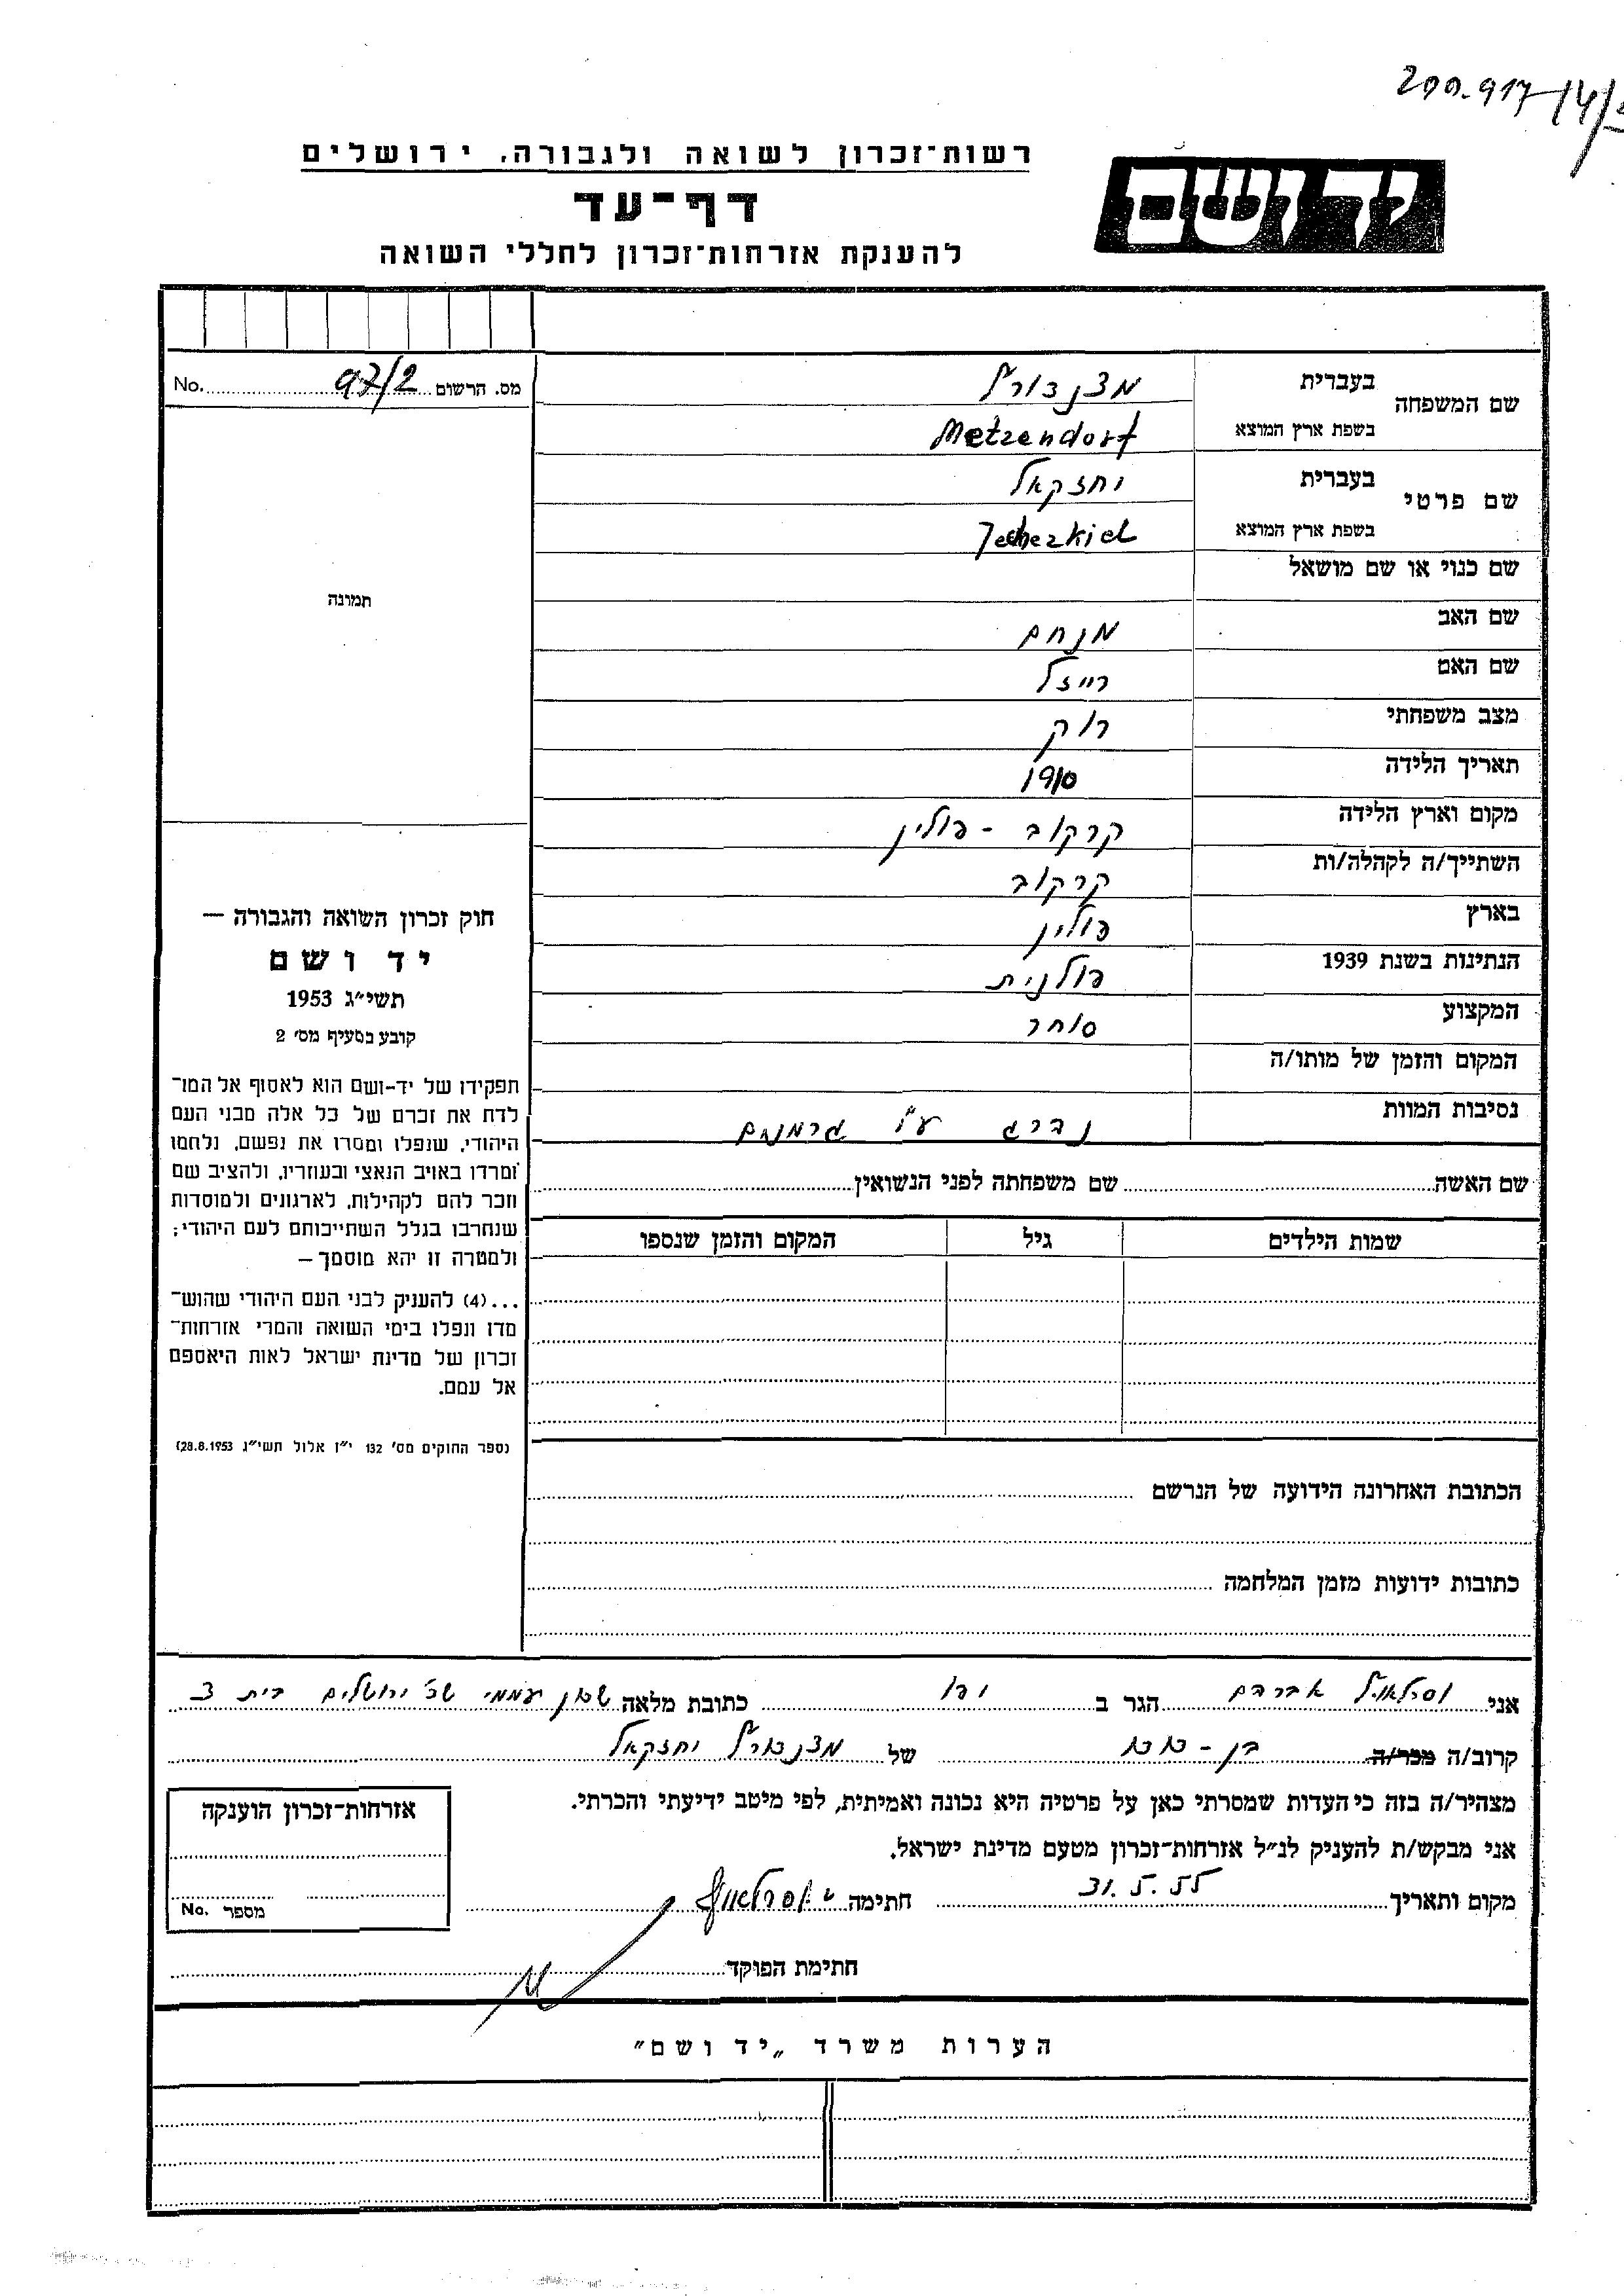 200.917
רשות־זכרון לשואה ולגבורה, ירושלים
יד ושם
דף־עד
להענקת אזרחות־זכרון לחללי השואה
מס. הרשום 97/2 No.
שם המשפחה
בעברית מצנדורף
בשפת ארץ המוצא Metzendorf
שם פרטי
בעברית יחזקאל
בשפת ארץ המוצא Jecheskiel
שם כנוי או שם מושאל
תמונה
שם האב מנחם
שם האם רייזל
מצב משפחתי רוק
תאריך הלידה 1910
מקום וארץ הלידה קרקוב - פולין
השתייך/ה לקהלה/ות קרקוב
בארץ פולין
הנתינות בשנת 1939 פולנית
המקצוע סוחר
המקום והזמן של מותו/ה
נסיבות המוות נהרג ע"י גרמנים
שם האשה שם משפחתה לפני הנשואין
שמות הילדים גיל המקום והזמן שנספו
חוק זכרון השואה והגבורה —
יד ושם
תשי״ג 1953
קובע בסעיף מס׳ 2
תפקידו של יד-ושם הוא לאסוף אל המו־
לדת את זכרם של כל אלה מבני העם
היהודי, שנפלו ומסרו את נפשם, נלחמו
ומרדו באויב הנאצי ובעוזריו, ולהציב שם
וזכר להם לקהילות, לארגונים ולמוסדות
שנחרבו בגלל השתייכותם לעם היהודי;
ולמטרה זו יהא מוסמך —
...(4) להעניק לבני העם היהודי שהוש־
מדו ונפלו בימי השואה והמרי אזרחות־
זכרון של מדינת ישראל לאות היאספם
אל עמם.
(ספר החוקים מס׳ 132 י״ז אלול תשי״ג 28.8.1953)
הכתובת האחרונה הידועה של הנרשם
כתובות ידועות מזמן המלחמה
אני אברהם הגר ב יפו כתובת מלאה שכון עממי ירושלים בית 3
קרוב/ה מכר/ה בן - דוד של מצנדורף יחזקאל
מצהיר/ה בזה כי העדות שמסרתי כאן על פרטיה היא נכונה ואמיתית, לפי מיטב ידיעתי והכרתי.
אני מבקש/ת להעניק לנ״ל אזרחות־זכרון מטעם מדינת ישראל.
מקום ותאריך 31.5.55 חתימה
חתימת הפוקד
אזרחות־זכרון הוענקה
מספר No.
הערות משרד „יד ושם״